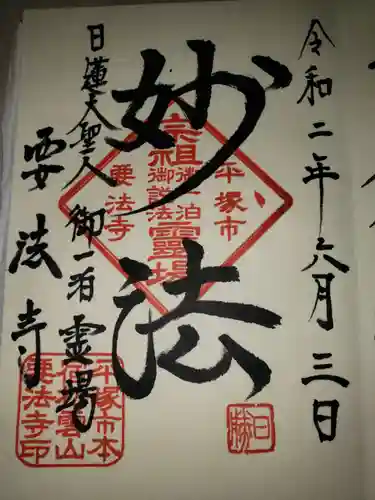 令和二年六月三日
妙法
日蓮大聖人御一泊霊場
要法寺
平塚市
宗祖御一泊霊場
御説法
要法寺
平塚市本
松雲山
要法寺印